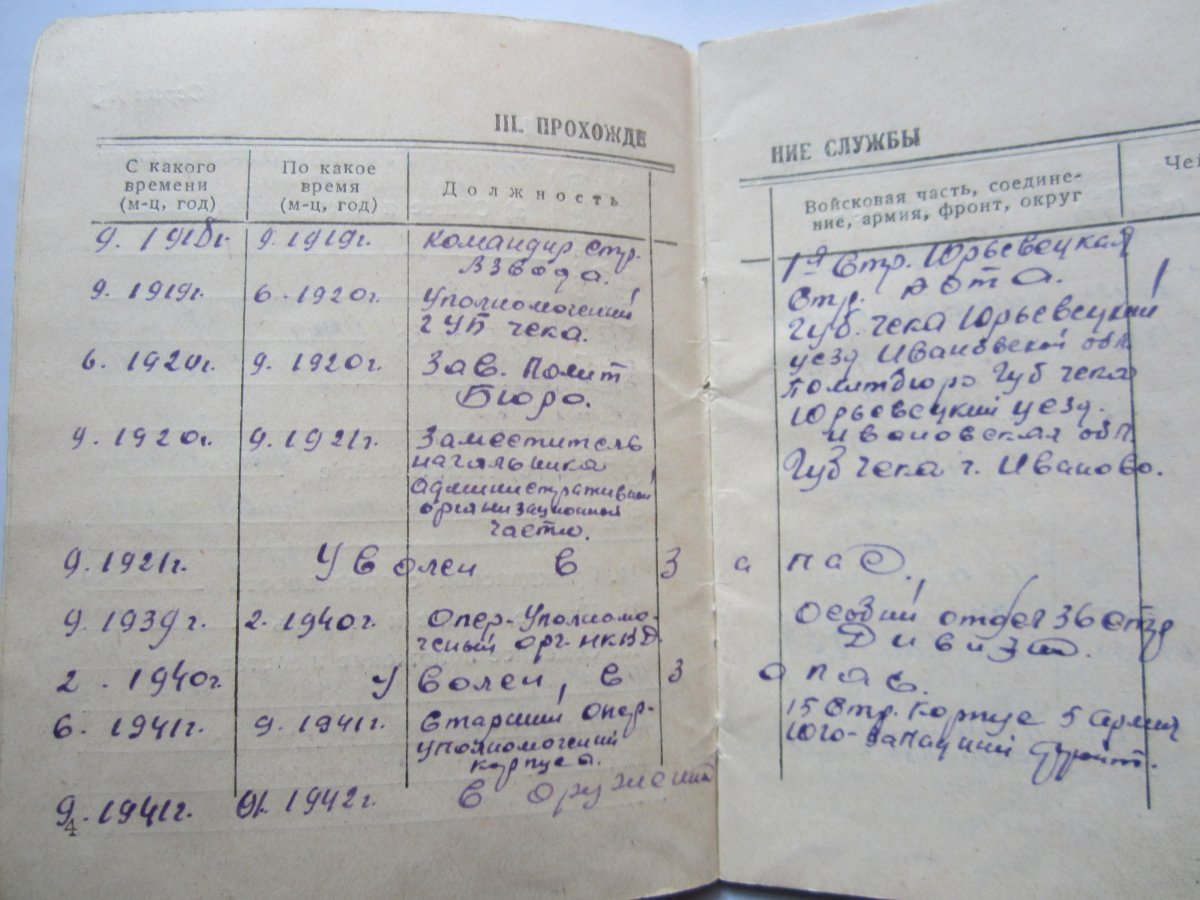 III. ПРОХОЖДЕ
С какого времени (м-ц, год)
По какое время (м-ц, год)
Должность
9. 1918г. 9. 1919г. Командир стр.
взвода.
9. 1919г. 6. 1920г. Уполномоченый
ГУБ чека.
6. 1920г. 9. 1920г. Зав. Полит
Бюро.
9. 1920г. 9. 1921г. Заместитель
начальника
административной
организационной
частью.
9. 1921г. Уволен в з
9. 1939г. 2. 1940г. Опер-Уполномо-
ченый орг. НКВД
2. 1940г. Уволен, в з
6. 1941г. 9. 1941г. Старший опер-
уполномоченый
корпуса.
9. 1941г. 01. 1942г. в окружении
4
НИЕ СЛУЖБЫ
Войсковая часть, соедине-
ние, армия, фронт, округ
Че
1я Стр. Юрьевецкая
стр. рота.
Губ. чека Юрьевецкий
уезд Ивановской обл.
Политбюро Губ чека
Юрьевецкий уезд.
Ивановская обл.
Губ чека г. Иваново.
апас.
Особый отдел 36 стр
Дивизии.
апас.
15 Стр. Корпус 5 армия
Юго-западний фронт.